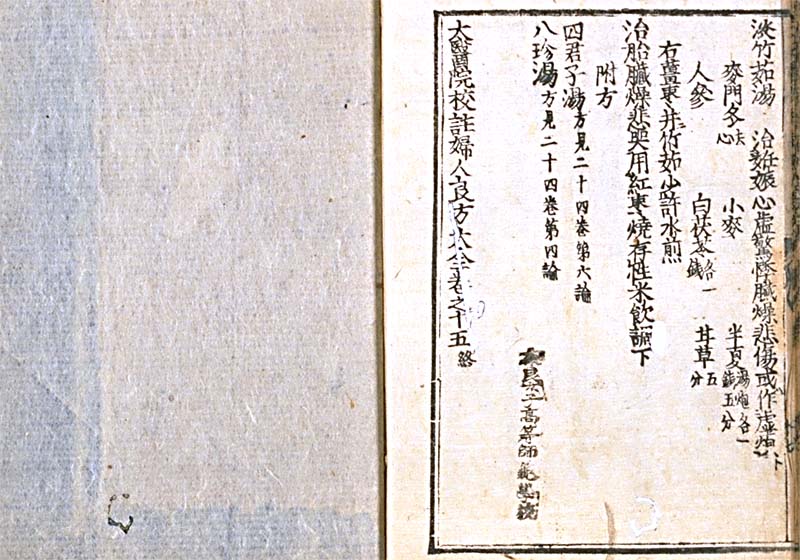 淡竹茹湯 治妊娠心虛驚悸臟燥悲傷或作虛煩
麥門冬去心 小麥 半夏湯炮各一錢五分
人參 白茯苓各一錢 甘草五分
右薑棗并竹茹少許水煎
治胎臟燥悲哭用紅棗燒存性米飲調下
附方
四君子湯方見二十四卷第六論
八珍湯方見二十四卷第四論
太醫院校註婦人良方大全卷之十五終
高等師範學校